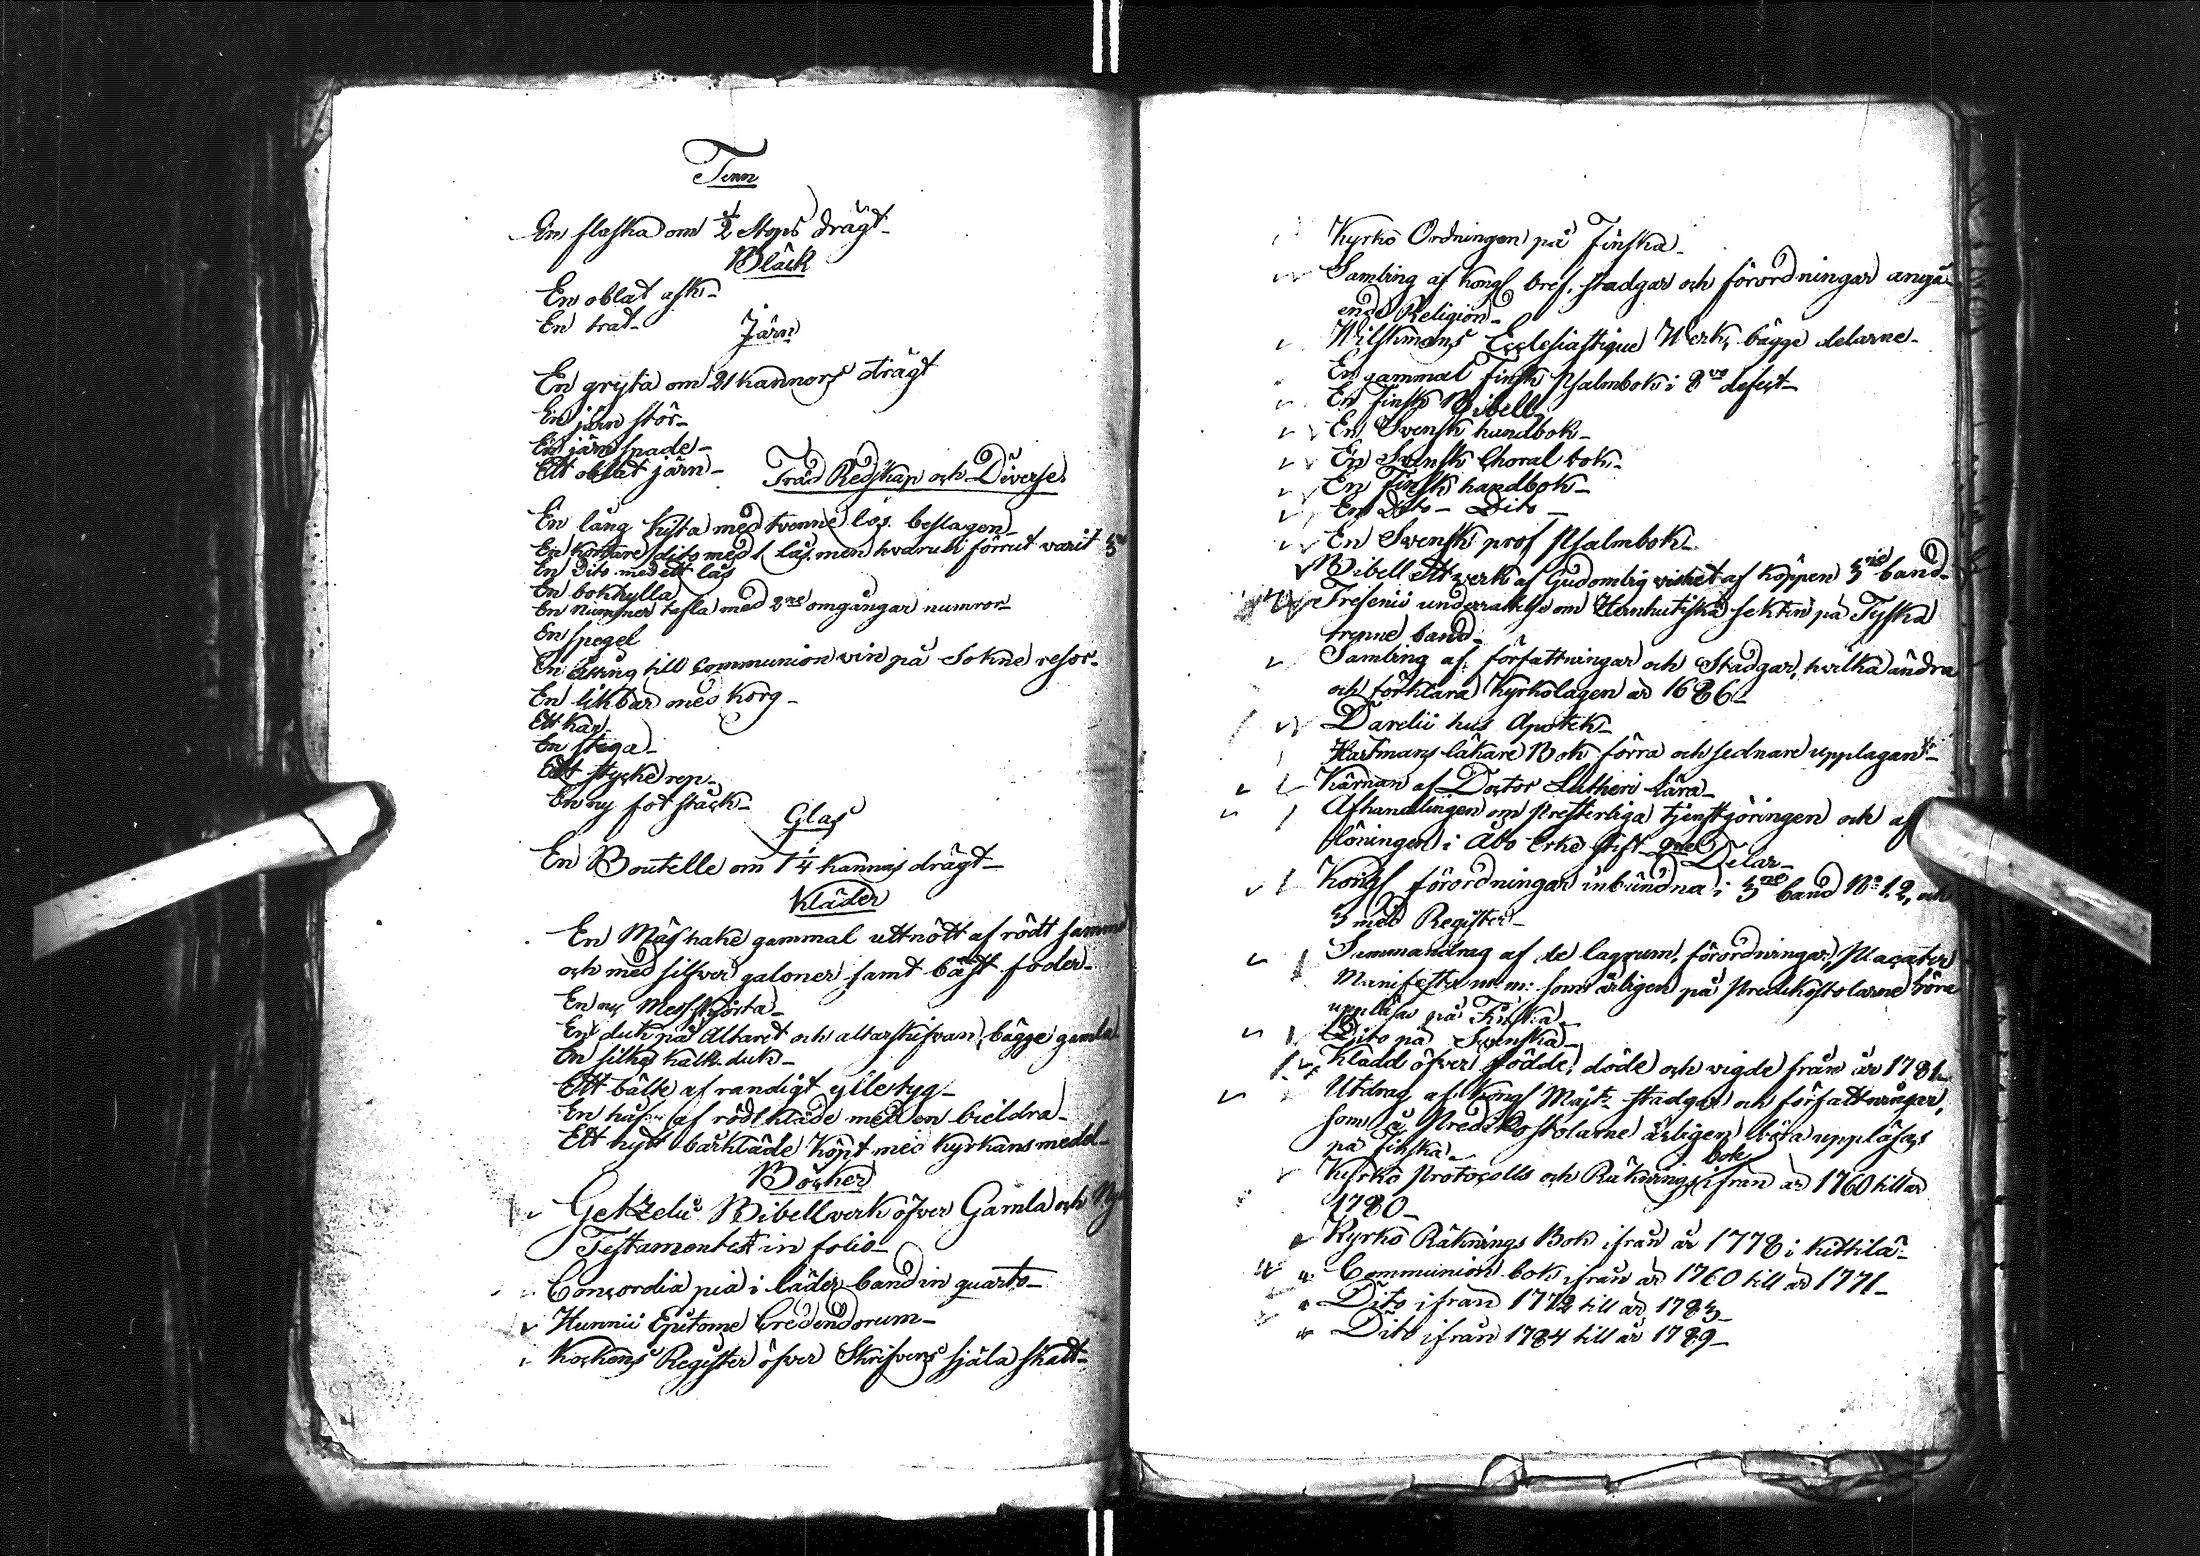 Tenn
En flaska om 1/2 Stops drägt
Bläck
En oblat ask
En trat
Järn
En gryta om 21 kannors drägt
En järn stör
En järn spade
Ett oblat järn
Träd Redskap och Diverse
En lång kista med tvenne lås beslagen
En kortare dito med 1 lås, men hvaruti förrut varit 3ne
En Dito med ett lås
En bokhylla
En Nummer tafla med 2ne omgångar numror
En spegel
En till Communion vin på Sokne resor
En likbår med korg
Ett kar
En stega
Ett stycke rep
En ny fot stäck
Glas
En Boutelle om 1 1/4 kannas drägt
Kläder
En Mäshake gammal uttnött af rödt samme
och med silfver galoner samt bäst foder
En ny Messkjorta
En duk på Altaret och altarskifvan, bägge gamla
En silkes kalk duk
Ett bälte af randigt ylle tyg
En håf af rödt kläde med en bieldra
Ett nytt bårkläde köpt med kyrkans medel
Böcker
Getzelii Bibellverk öfver Gamla och Ny
Testamentet in folio
Concordia pia i läder band in quarto
Hunnii Epitome Credendorum
Kockens Register öfver Skrifvens själa skatt
Kyrko Ordningen på Finska
Samling af kongl bref, stadgar och förordningar angå
ende Religion
Wilskmans Ecclesiastique Werk, bägge delarne
En gammal Finsk Psalmbok i 8vo defect
En Finsk Bibell
En Svensk handbok
En Svensk Choral bok
En Finsk handbok
En Dito Dito
En Svensk prof Psalmbok
Bibell ett verk af Gudomlig vishet af Köppen 3ne band
Fresenii underrattelse om Hernhutiska sekten på Tyska
trenne band
Samling af författningar och Stadgar, hvilka ändra
och förklara Kyrkolagen år 1686
Darelii hus Apotek
Hartmans läkare Bok förra och sednare upplagan
Kärnan af Doctor Lutheri lära
Afhandlingen om Presterliga tjenstgöringen och af
löningen i Åbo Erke stift 2ne Delar
Kongl förordningar inbundna i 3ne band No 1, 2, och
3 med Register
Summandrag af de lagrum, förordningar, Placater
Manifester m. m: som årligen på Predikostolarne böra
uppläsas på Finska
Dito på Svenska
Kladd öfver födde, döde och vigde från år 1781
Utdrag af Kongl Majts stadgar och författningar,
som å Predikostolarne årligen böra uppläsas
på finska
Kyrko Protocolls och Räknings bok ifrån år 1760 till år
1780
Kyrko Räknings Bok ifrån år 1778 i Kittilä
Communion bok ifrån år 1760 till år 1771
Dito ifrån 1772 till år 1783
Dito ifrån 1784 till år 1789